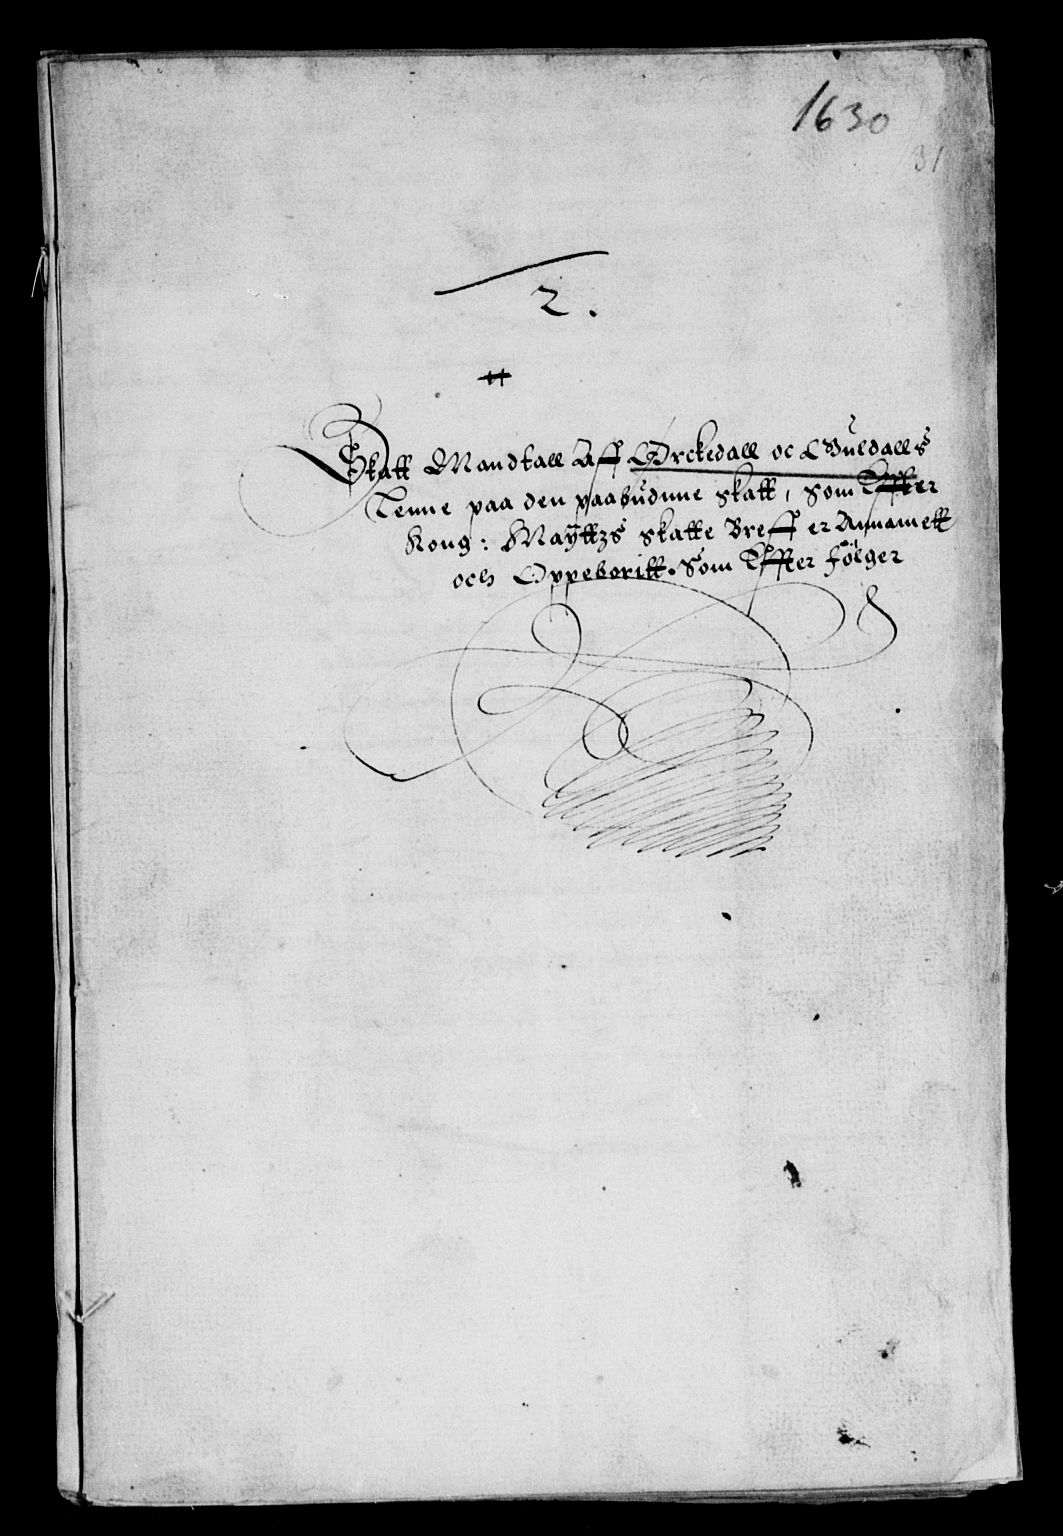 1630
31
2.
Skatt Mandtall Aff Ørckedall oc Guldalls
Lenne paa den paabudne skatt, som Effter
Kong: Mayttzs skatte Breff er Annamett
och Oppeboritt. Som Effter følger